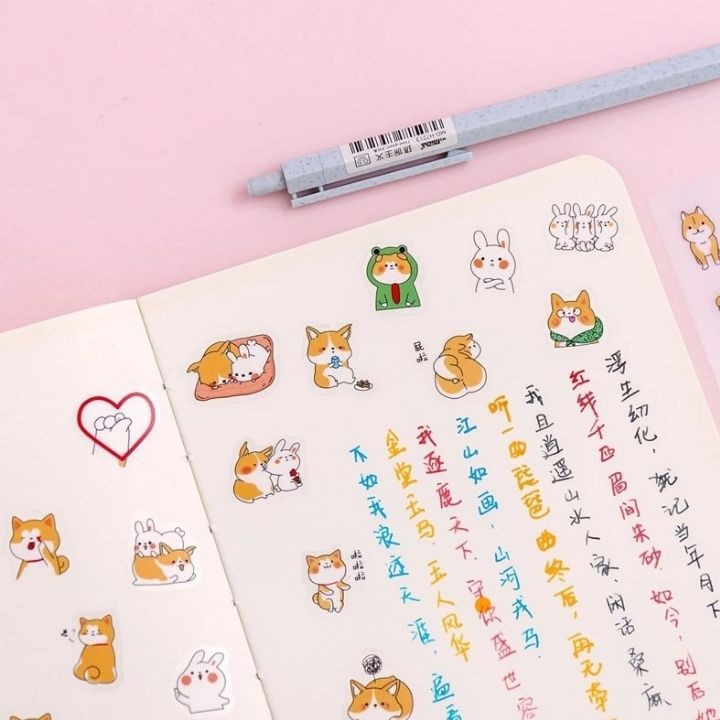 环保主义
0.5
浮生幻化，犹记当年月下
红绊千匹 眉间朱砂. 如今，别后
我且逍遥山水人家，闲话桑麻
听一曲琵琶 曲终后，再无牵
江山如画，山河戎马.
我逐鹿天下. 守你盛世容
金堂玉马，玉人风华
不如我浪迹天涯，遍看
啦啦啦